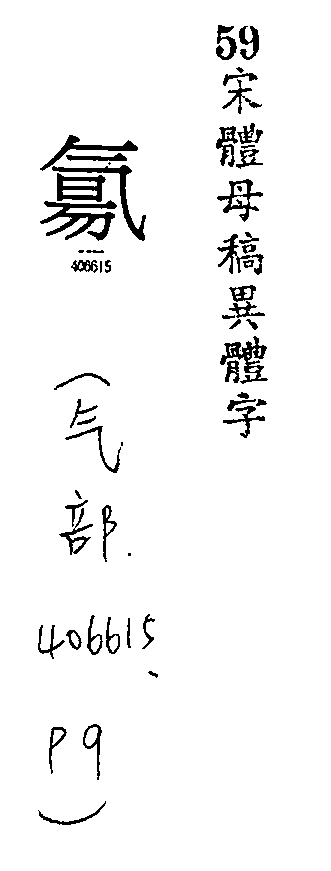 59宋體母稿異體字
氱
406615
(气部.406615、P9)